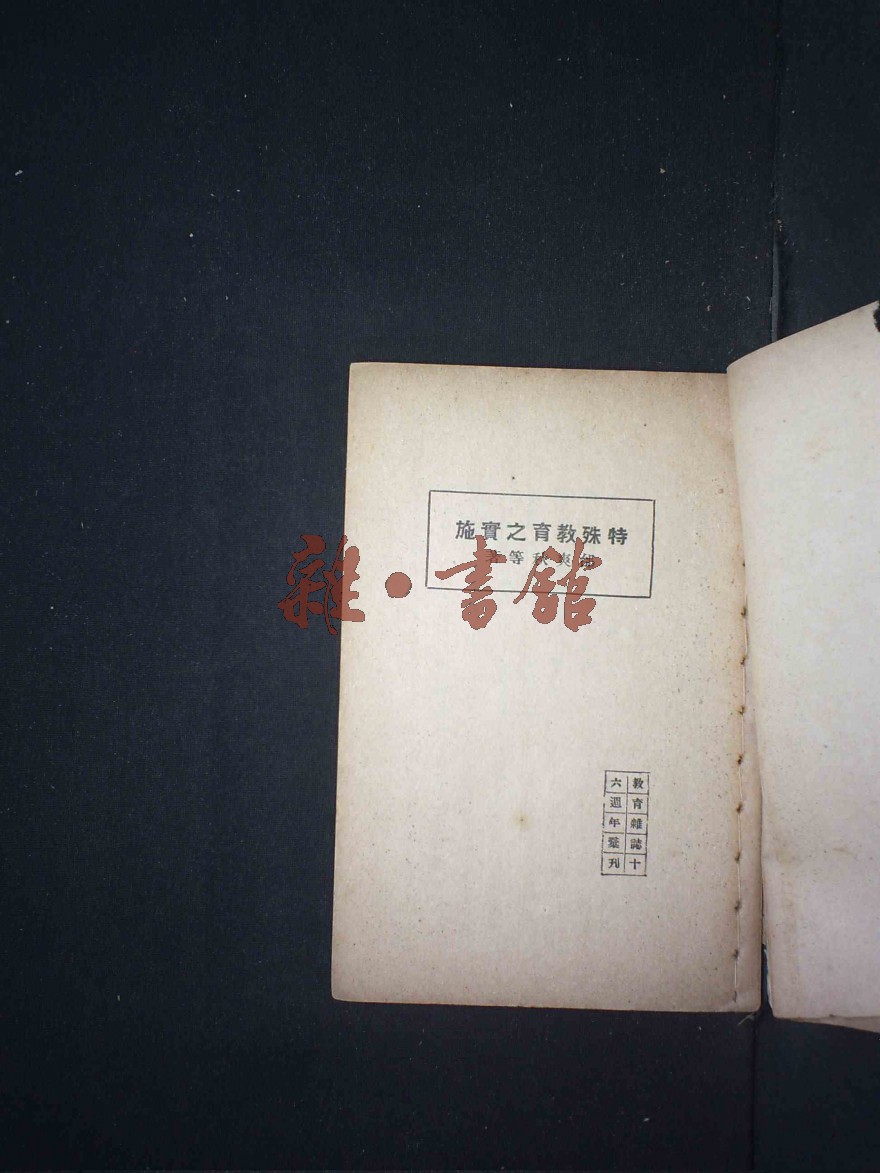 特殊教育之實施
邰爽秋等著
雜·書館
教育雜誌十
六週年彙刊